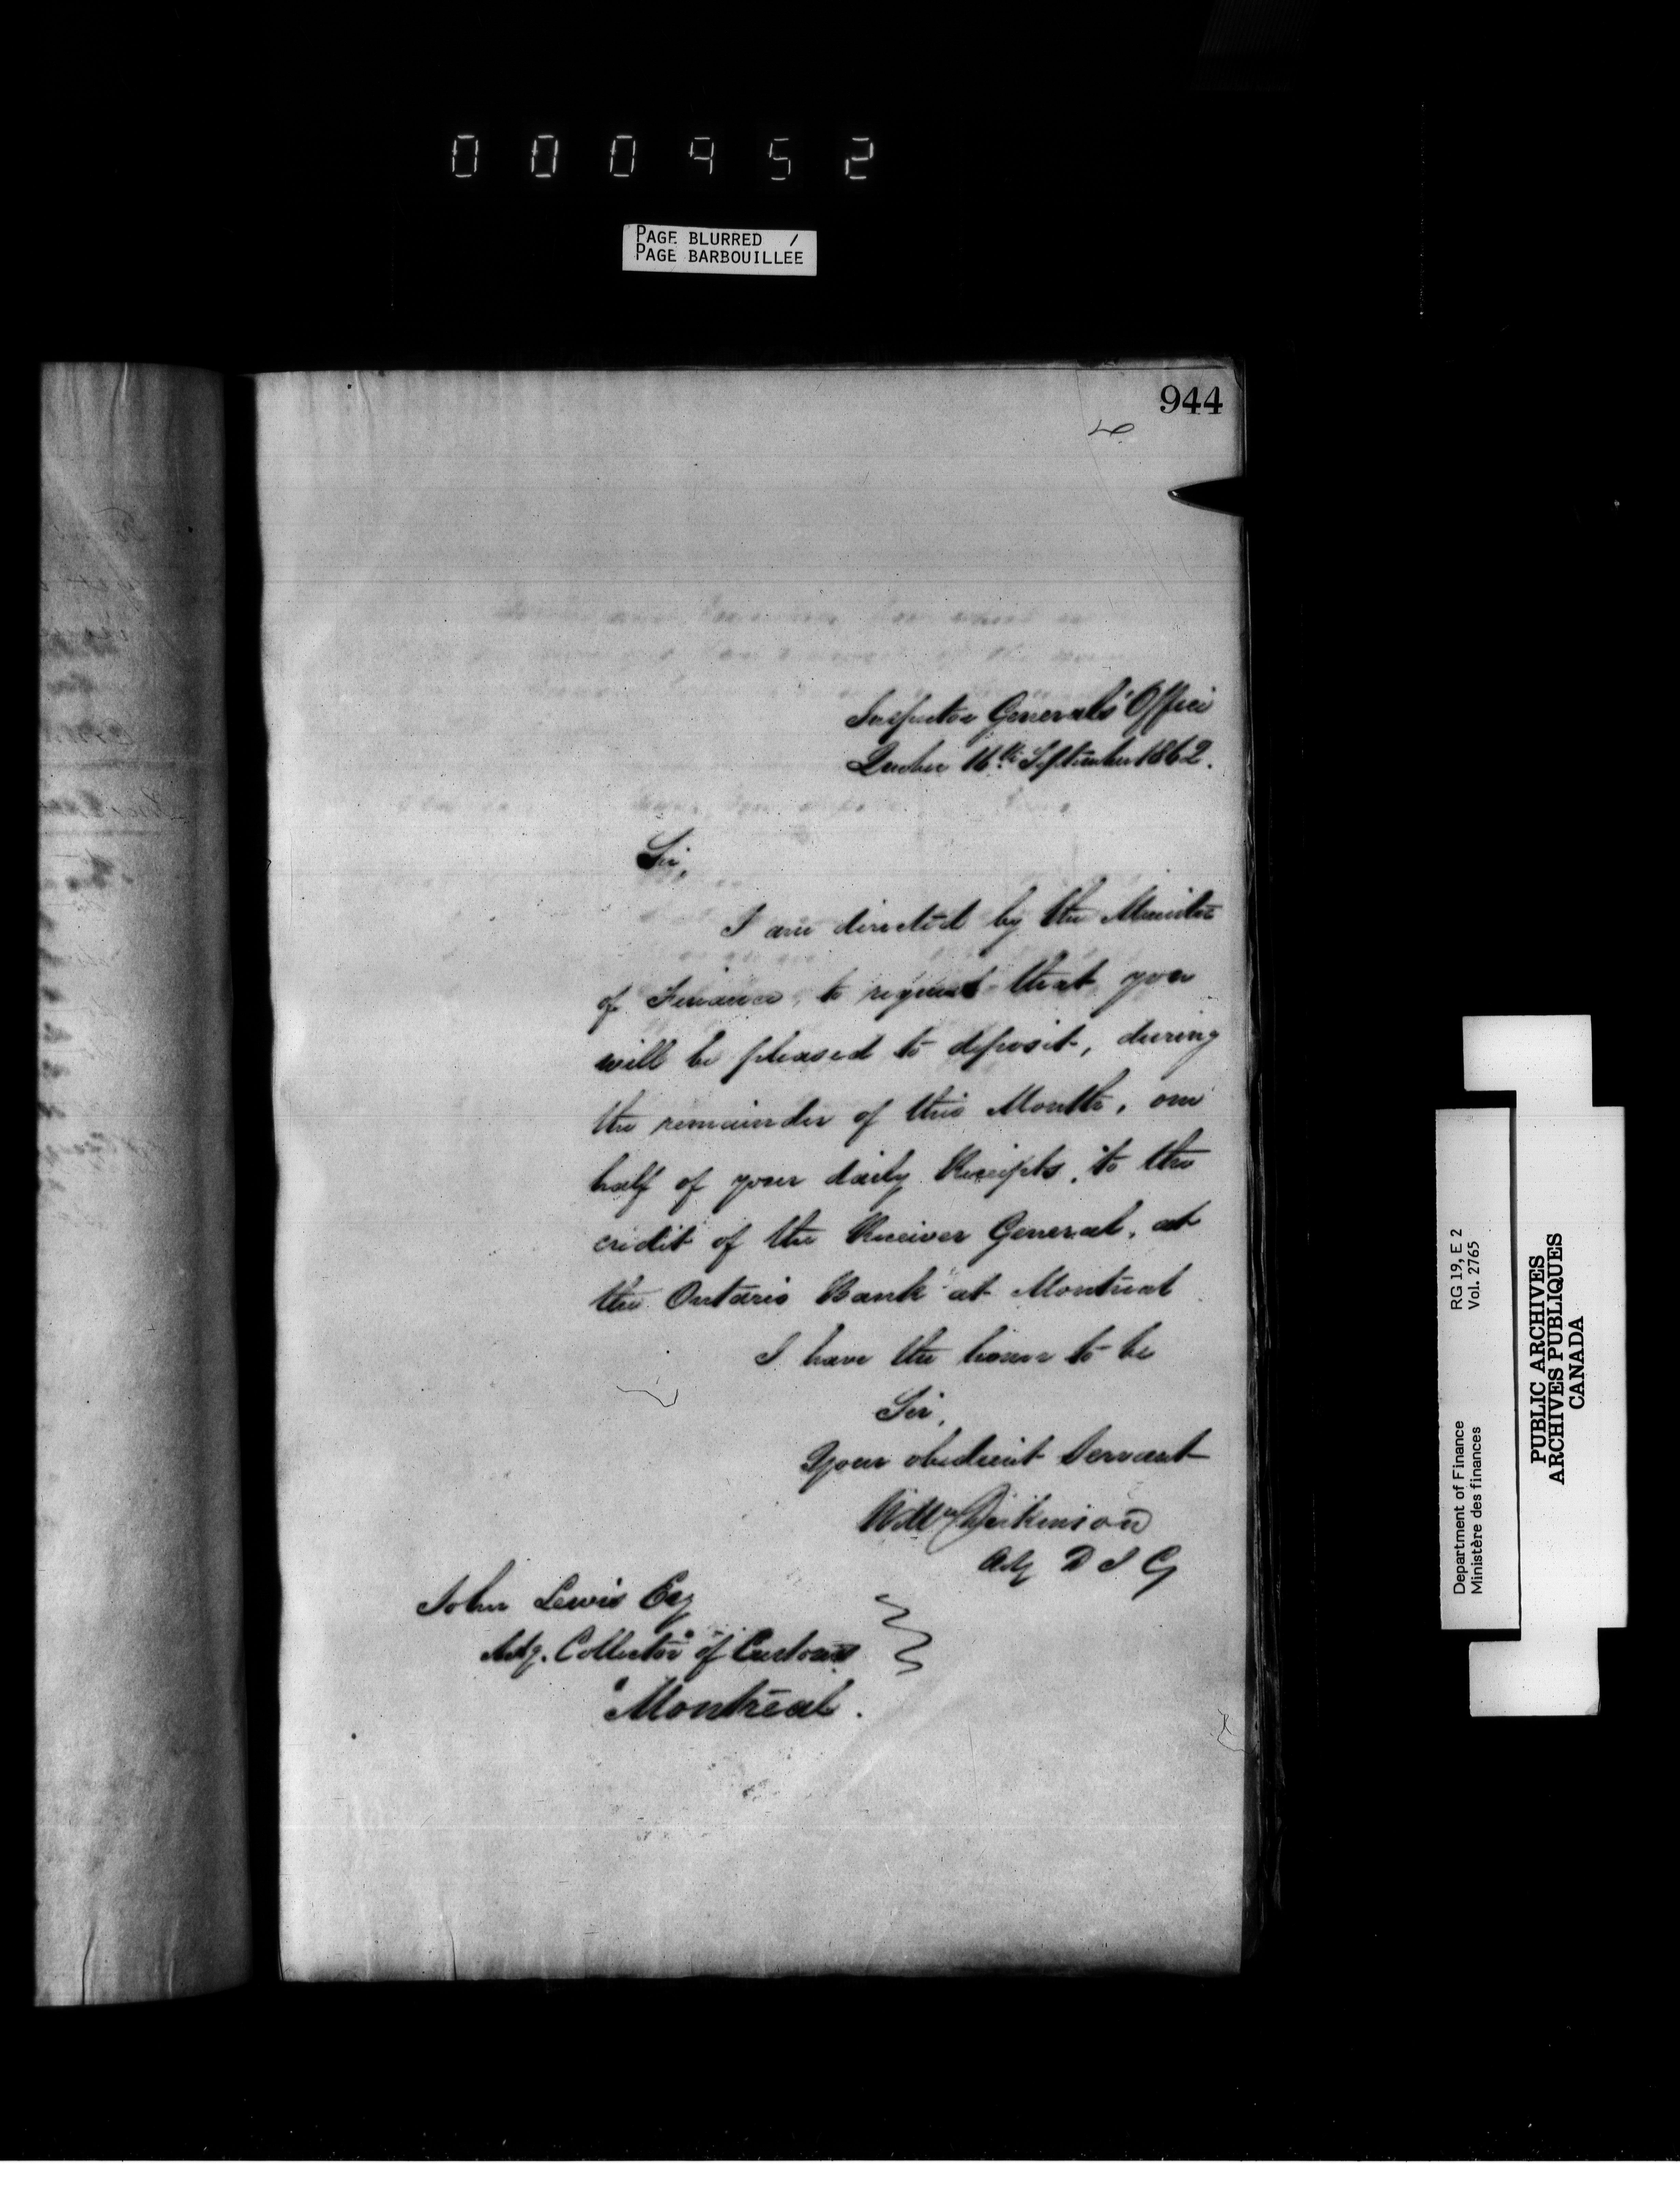 000452
PAGE BLURRED /
PAGE BARBOUILLEE
944
Inspector Generals' Office
Quebec 16th September 1862.
Sir,
I am directed by the Minister
of Finance, to request that you
will be pleased to deposit, during
the remainder of this Month, one
half of your daily Receipts, to the
credit of the Receiver General, at
the Ontario Bank at Montreal
I have the honor to be
Sir,
Your obedient Servant
Wm Dickinson
Actg D I G
John Lewis Esq
Actg. Collector of Customs
Montreal.
Department of Finance RG 19, E 2
Ministère des finances Vol. 2765
PUBLIC ARCHIVES
ARCHIVES PUBLIQUES
CANADA